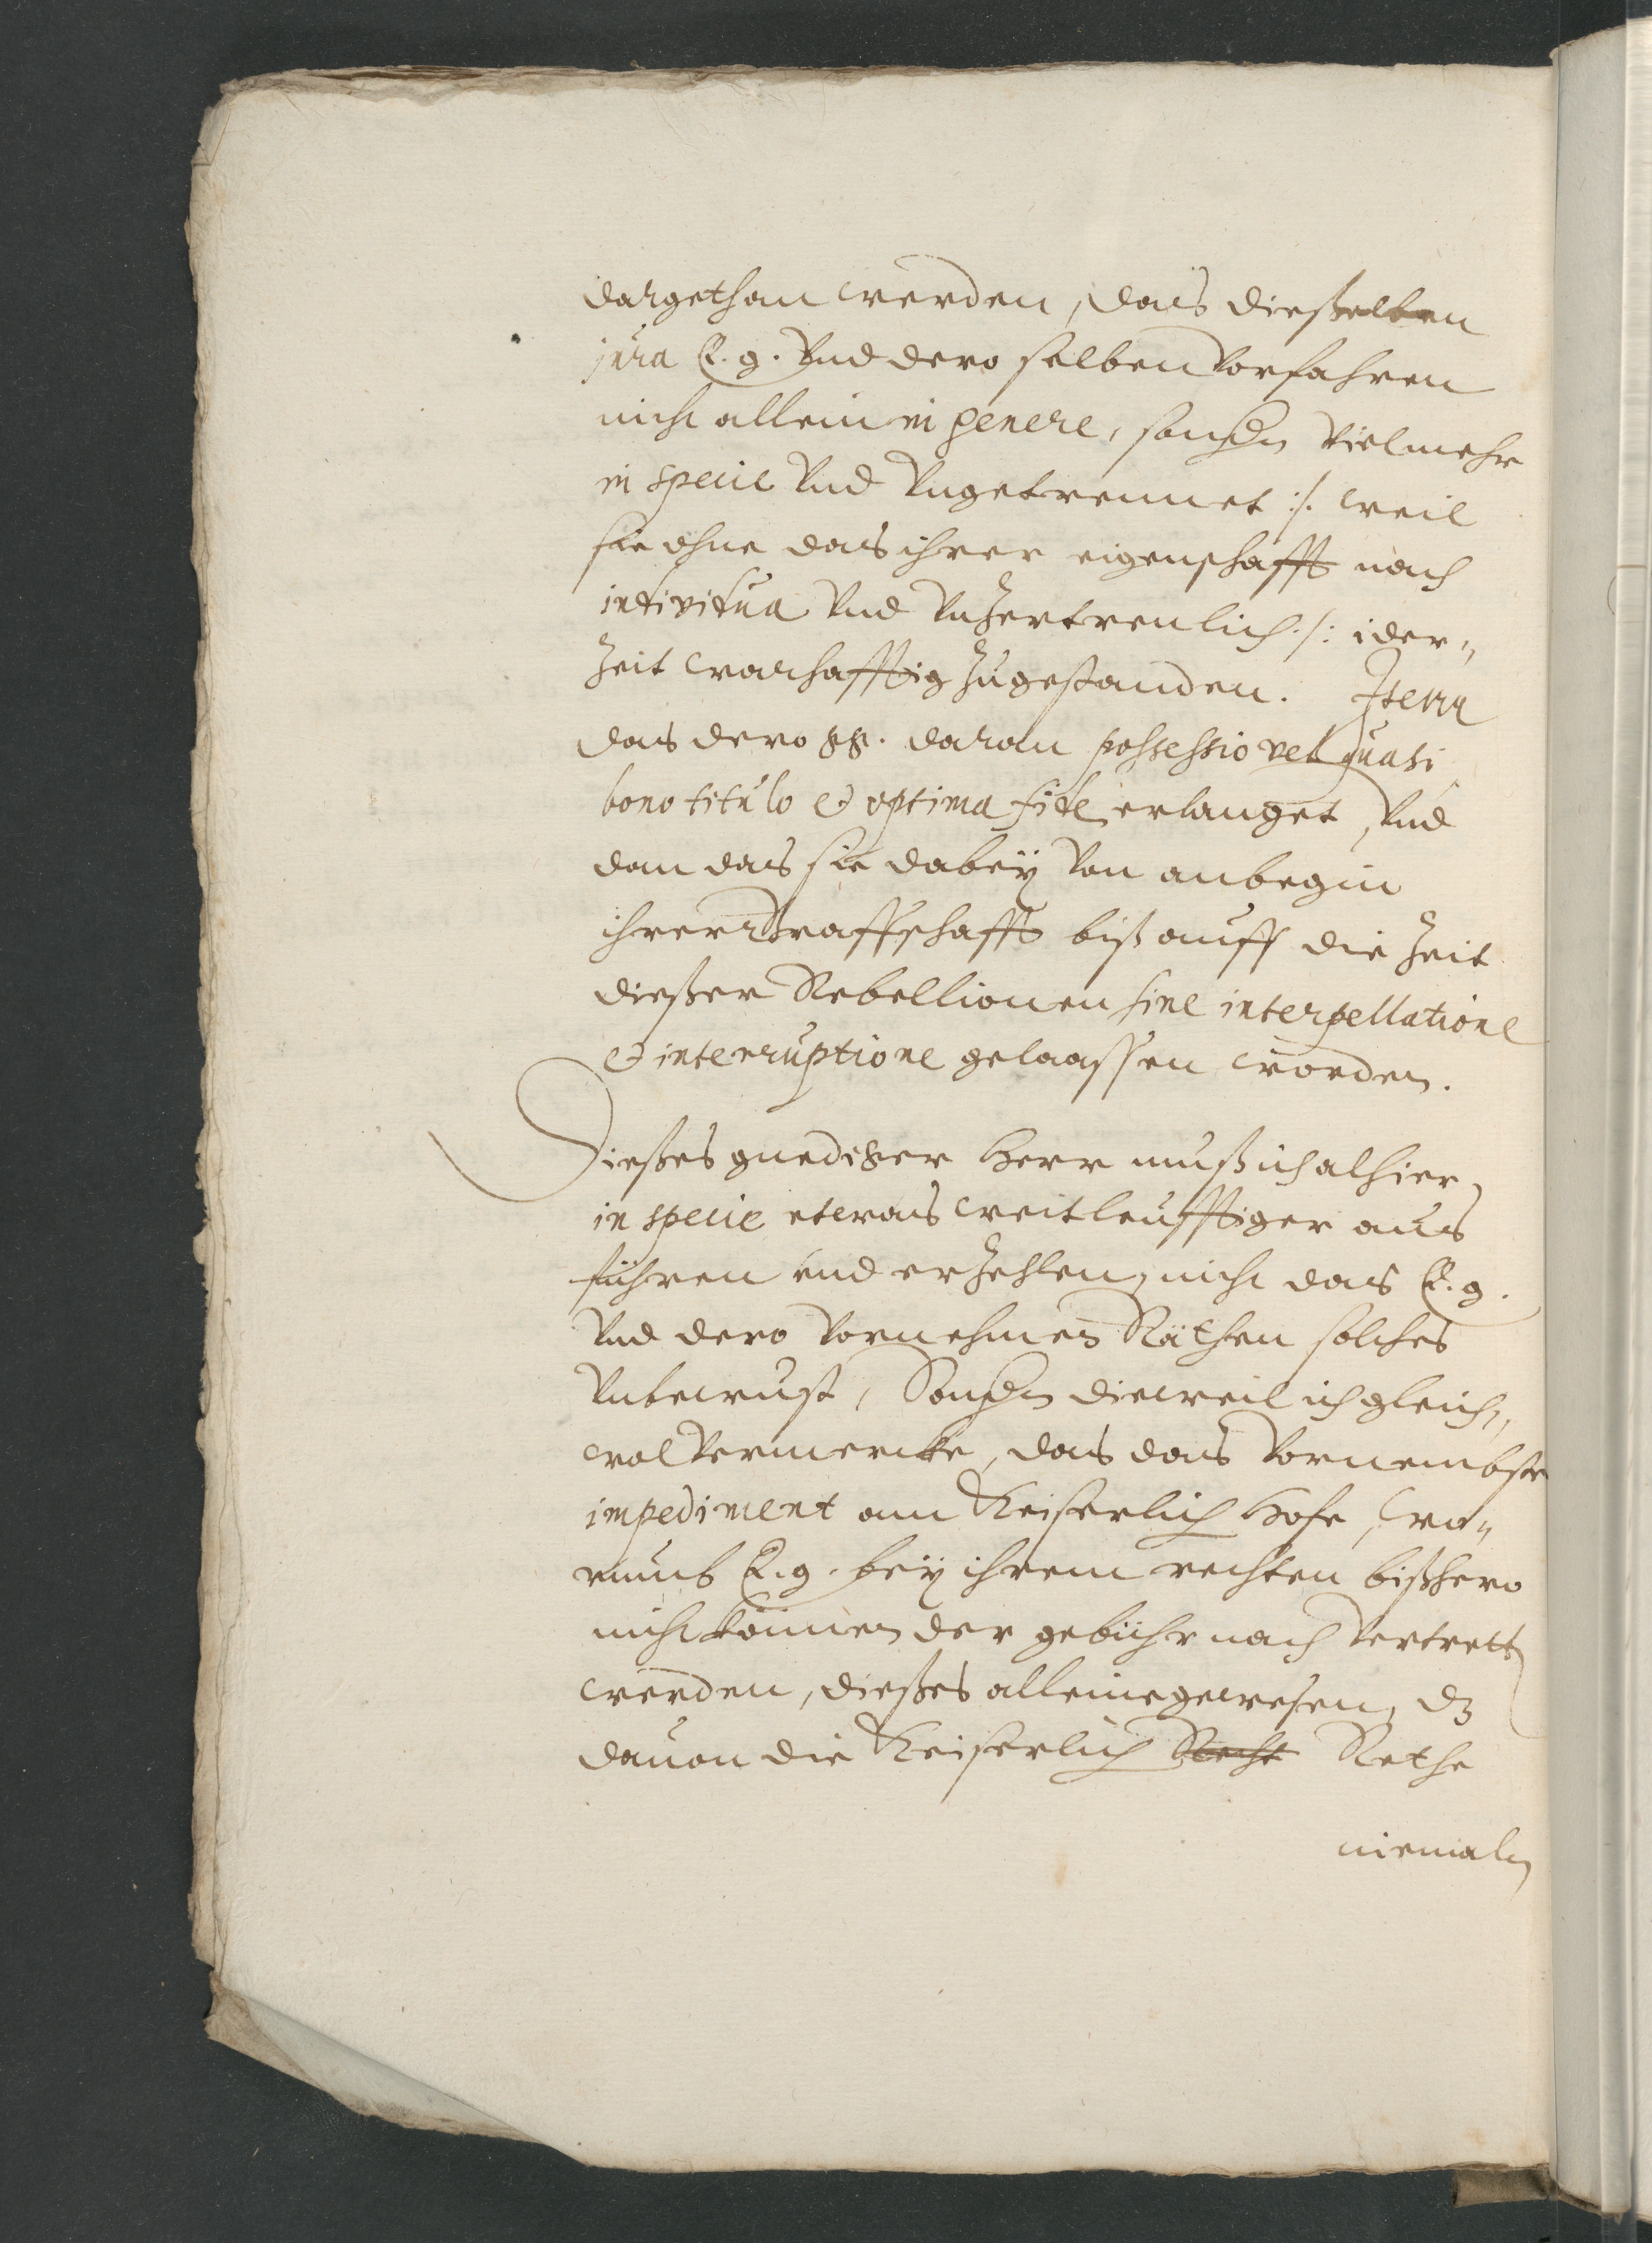 dargethan werden, das dießelben
jura E. g. Vnd dero selben Vorfahren
nicht allein in genere, sondern Vielmehr
in specie Vnd Vngetrennet :/. weil
sie ohne das ihrer eigenschafft nach
individua Vnd Vnzertrenlich ./: ider„
zeit warhafftig zugestanden. Item
das dero gg. daran possessio vel quasi
bono titulo et optima fide erlanget, Vnd
dan das sie dabeÿ Von anbegin
ihrer Graffschafft biß auff die Zeit
dießer Rebellionen sine interpellatione
et interruptione gelaassen worden.
Dießes gnediger Herr muß ich alhier
in specie etwas weitleufftiger aus
führen und erzehlen, nicht das E. g.
Vnd dero Vornehmen Räthen solches
Vnbewust, Sondern dieweil ich gleich„
wol Vermercke, das das Vornembste
impediment am Keiserlich Hofe, wa„
rumb E. g. beÿ ihrem rechten bißhero
nicht können der gebühr nach Vertrett
werden, dießes alleine gewesen, dz
dauon die Keiserlich Recht Rethe
niemaln